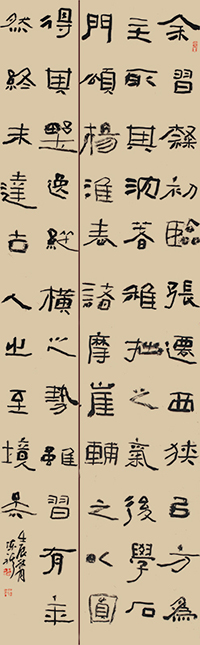 余習隸初臨張遷西狹以方為
主取其沈着雄拙之氣後學石
門頌楊淮表諸摩崖輔之以圓
得其野逸縱橫之勢雖習有年
然終未達古人之至境矣
壬辰